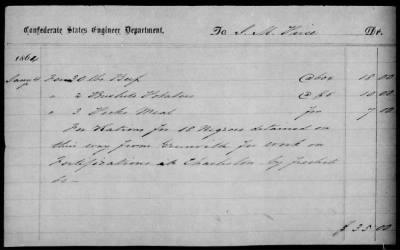 Confederate States Engineer Department, To J. M. Dr.
1864
Jany For 30 lbs Beef @ 60c 18.00
" 2 Bushels Potatoes @ $5 10.00
" 3 Pecks Meal for 7.00
For Rations for 18 Negroes detained on
this way from Greenville for work on
Fortifications at Charleston by freshet
&c —
$ 35.00